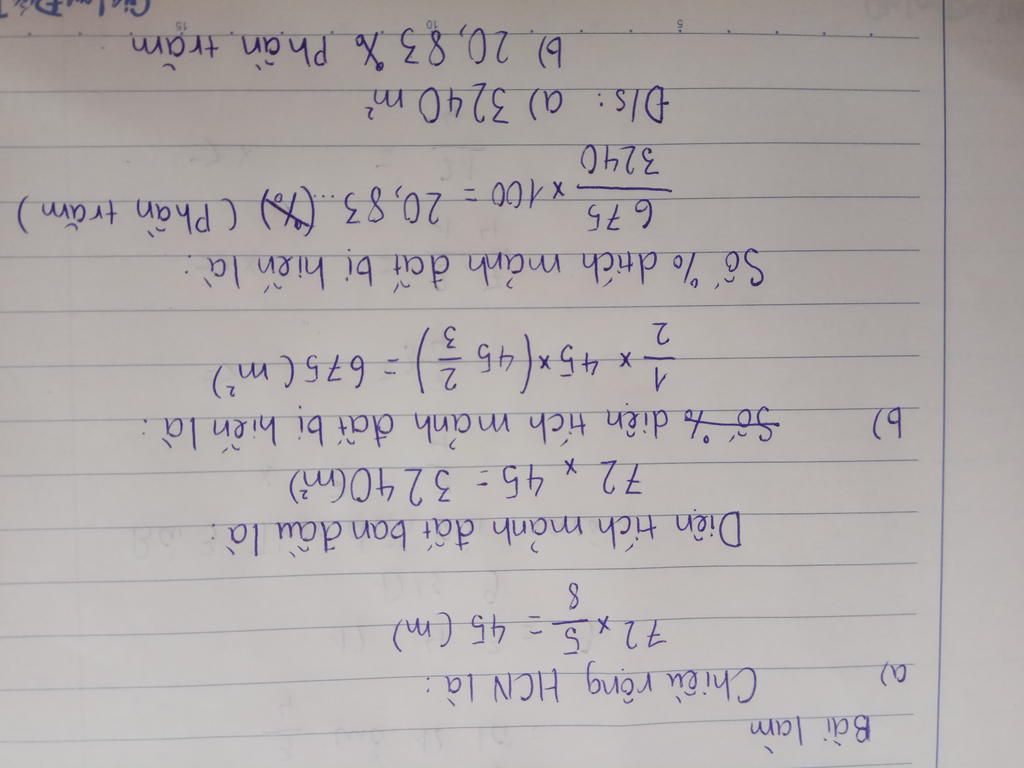 Bài làm
a) Chiều rộng HCN là:
72 × 5/8 = 45 (m)
Diện tích mảnh đất ban đầu là:
72 × 45 = 3240 (m²)
b) Số % diện tích mảnh đất bị hiến là:
1/2 × 45 × (45 2/3) = 675 (m²)
Số % dtích mảnh đất bị hiến là:
675/3240 × 100 = 20,83... (%) (Phần trăm)
Đ/s: a) 3240 m²
b) 20,83 % Phần trăm